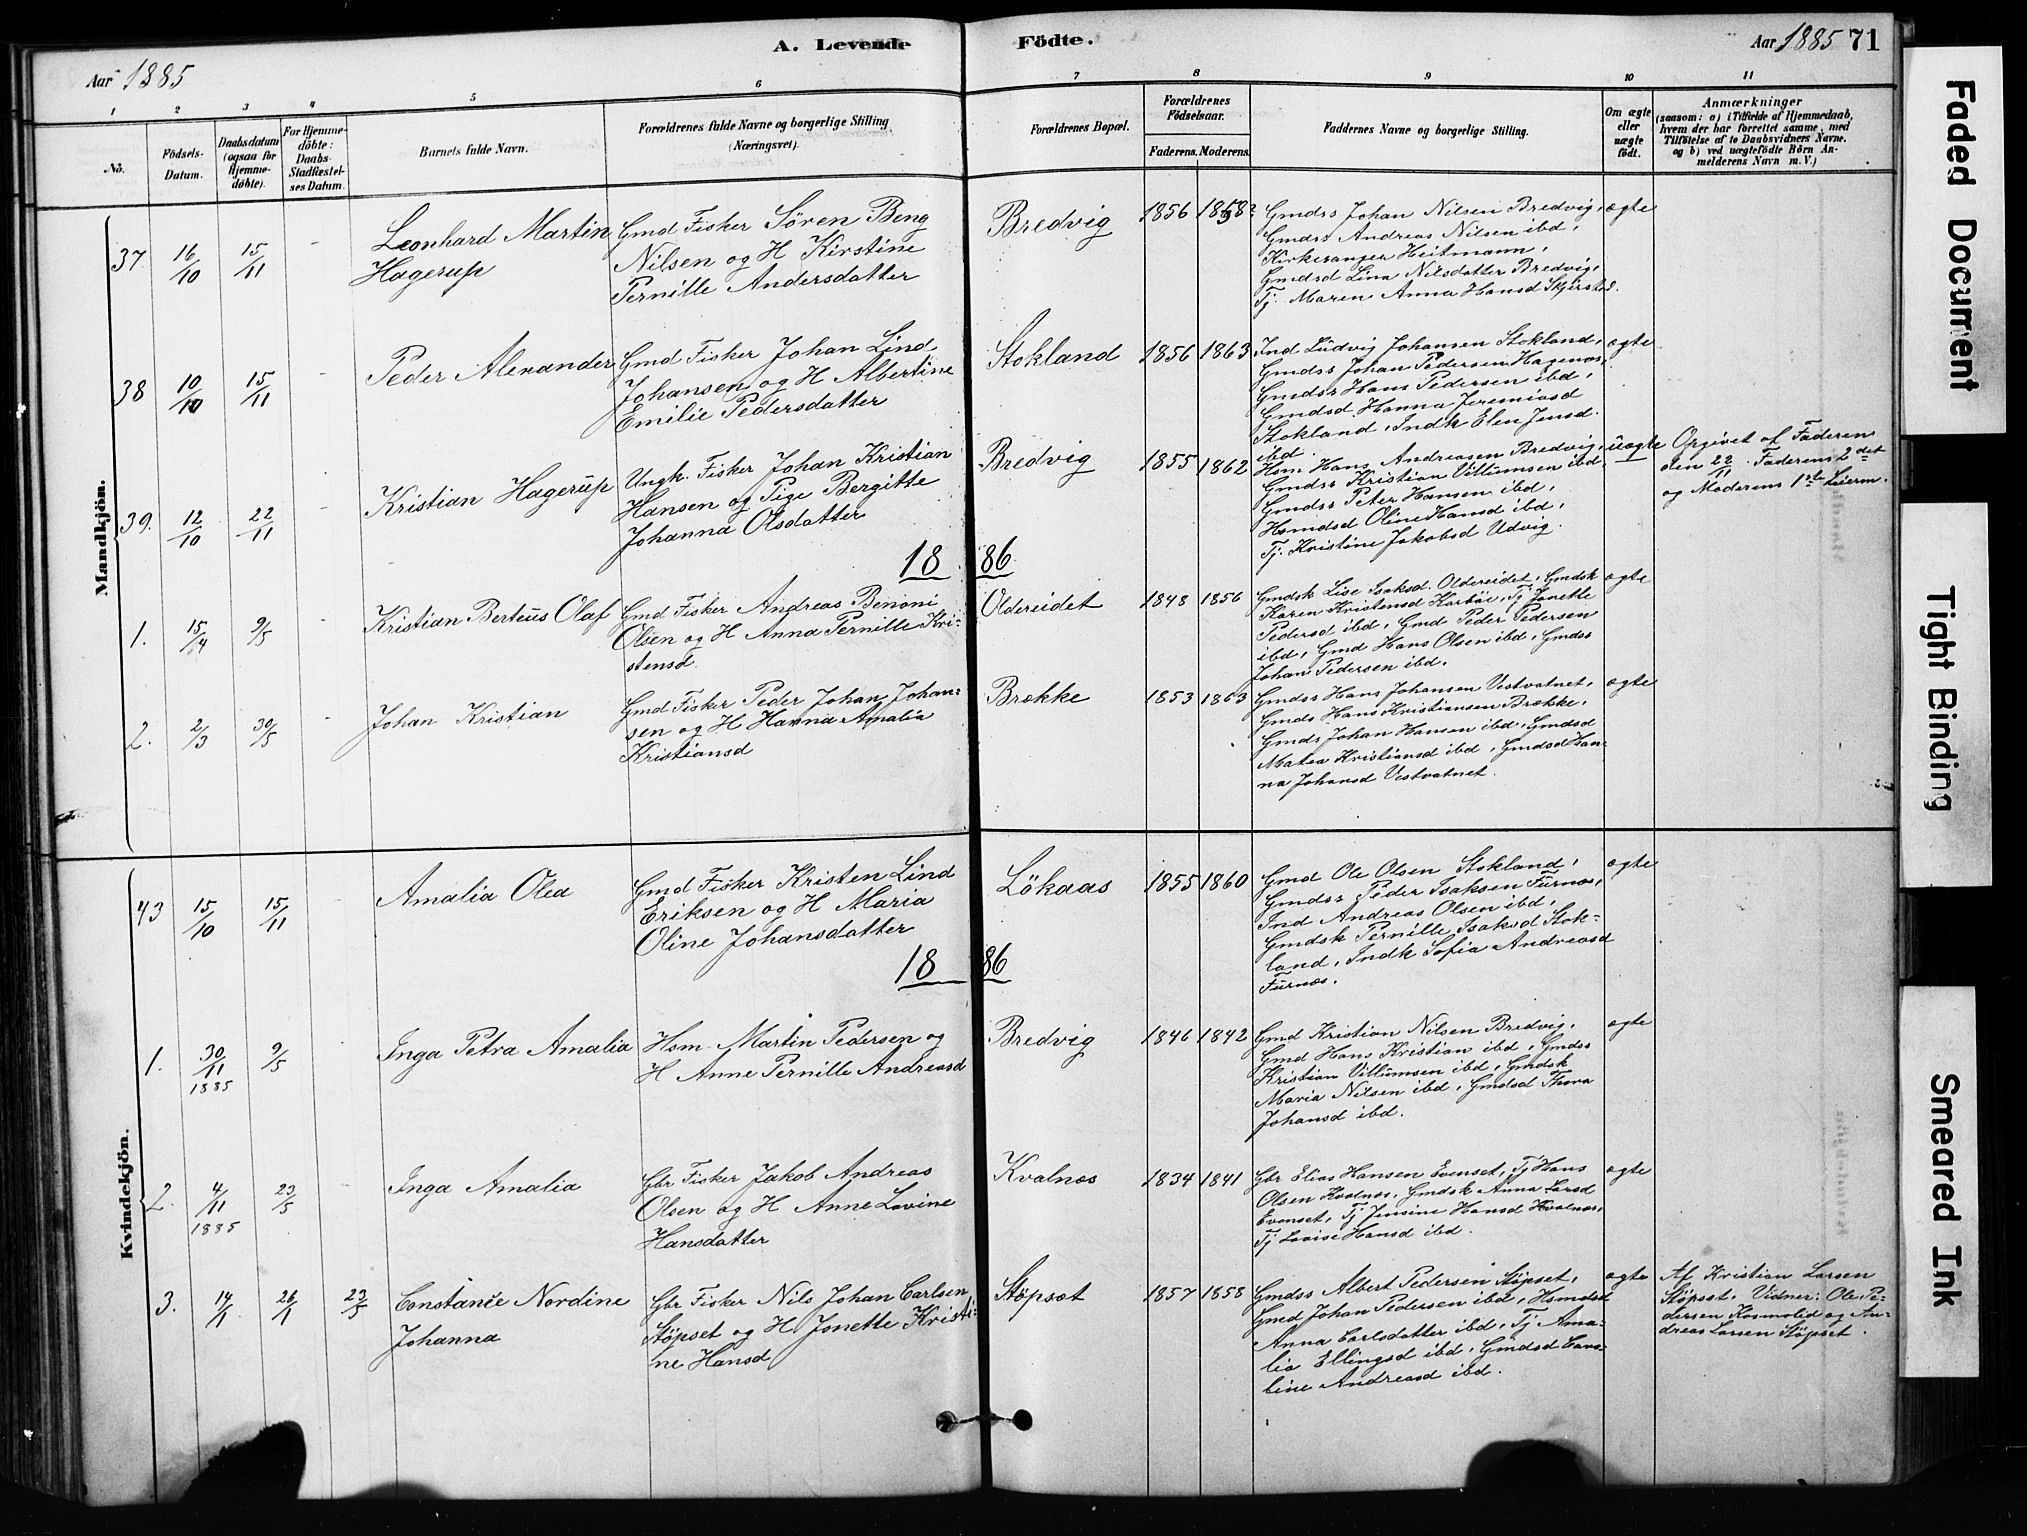 A. Levende Födte.
Aar 1885
Aar 1885 71
1 2 3 4 5 6 7 8 9 10 11
No.
Födsels-
Datum.
Daabsdatum
(ogsaa for
Hjemme-
døbte).
For Hjemme-
döbte:
Daabs-
Stadfæstel-
ses Datum.
Barnets fulde Navn.
Forældrenes fulde Navne og borgerlige Stilling
(Næringsvei).
Forældrenes Bopæl.
Forældrenes
Födselsaar.
Faderens. Moderens.
Faddernes Navne og borgerlige Stilling.
Om ægte
eller
uægte
födt.
Anmærkninger
(saasom: a) i Tilfælde af Hjemmedaab,
hvem der har forrettet samme, med
Tilföielse af to Daabsvidners Navne.
og b) ved uægtefödte Börn An-
melderens Navn m.V.)
Mandkjön.
37 16/10 15/11 -
Leonhard Martin
Hagerup
Gmd Fisker Sören Beng
Nilsen og H Kirstine
Pernille Andersdatter
Bredvig 1856 1858?
Gmdss Johan Nilsen Bredvig,
Gmdss Andreas Nilsen ibd,
Kirkesanger Heitmann,
Gmdsd Lina Nilsdatter Bredvig,
Tj. Maren Anna Hansd Skjerstad.
ægte
38 10/10 15/11 -
Peder Alexander
Gmd Fisker Johan Lind
Johansen og H Albertine
Emilie Pedersdatter
Stokland 1856 1863
Ind Ludvig Johansen Stokland,
Gmdss Johan Pedersen Hagenæs,
Gmdss Hans Pedersen ibd,
Gmdsd Hanna Jeremiasd
Stokland, Indk Elen Jensd
ibd.
ægte
39. 12/10 22/11 -
Kristian Hagerup
Ungk. Fisker Johan Kristian
Hansen og Pige Bergitte
Johanna Olsdatter
Bredvig 1855 1862
Hsm Hans Andreasen Bredvig,
Gmdss Kristian Villumsen ibd,
Gmdss Peter Hansen ibd,
Hsmdsd Oline Hansd ibd,
Tj. Kristine Jakobsd Udvig.
uægte
Opgivet af Faderen
den 22/11. Faderens 2det
og Moderens 1ste Leierm.
18 86
1. 15/4 9/5
Kristian Berteus Olaf
Gmd Fisker Andreas Benoni
Olsen og H Anna Pernille Kri-
stensd.
Oldereidet 1848 1856
Gmdsk Lise Isaksd. Oldereidet, Gmdsk
Karen Kristensd Karbøe, Tj Jonette
Pedersd ibd, Gmd Peder Pedersen
ibd, Gmd Hans Olsen ibd, Gmdss
Johan Pedersen ibd.
ægte
2. 2/3 30/5
Johan Kristian
Gmd Fisker Peder Johan Johan-
sen og H Hanna Amalia
Kristiansd
Brække 1853 1863
Gmdss Hans Johansen Vestvatnet,
Gmds Hans Kristiansen Brække,
Gmds Johan Hansen ibd, Gmdsd
Matea Kristiansd ibd, Gmdsd Han-
na Johansd Vestvatnet.
ægte
Kvindekjön.
43 15/10 15/11
Amalia Olea
Gmd Fisker Kristen Lind
Eriksen og H Maria
Oline Johansdatter
Lökaas 1855 1860
Gmd Ole Olsen Stokland,
Gmdss Peder Isaksen Furnæs,
Ind Andreas Olsen ibd,
Gmdsk Pernille Isaksd Stok-
land, Indk Sofia Andreasd
Furnæs.
ægte
18 86
1. 30/11 1885 9/5
Inga Petra Amalia
Hsm. Martin Pedersen og
H Anne Pernille Andreasd
Bredvig 1846 1842
Gmd Kristian Nilsen Bredvig,
Gmd Hans Kristian ibd, Gmdss
Kristian Villumsen ibd, Gmdsk
Maria Nilsen ibd, Gmdsd Thora
Johansd ibd.
ægte
2. 4/11 1885 23/5
Inga Amalia
Gbr Fisker Jakob Andreas
Olsen og H Anne Lovine
Hansdatter
Kvalnæs 1834 1841
Gbr Elias Hansen Evenset, Tj Hans
Olsen Kvalnæs, Gmdsk Anna Larsd
Evenset, Tj Jensine Hansd Kvalnæs,
Tj Lovise Hansd ibd.
ægte
3. 14/1 26/1 23/5
Constance Nordine
Johanna
Gbr Fisker Nils Johan Carlsen
Stöpset og H Jonette Kristi-
ne Hansd
Stöpset 1857 1858
Gmdss Albert Pedersen Stöpset,
Gmd Johan Pedersen ibd, Hsmdsd
Anna Carlsdatter ibd, Tj Ama-
lia Ellingsd ibd, Gmdsd Caro-
line Andreasd ibd.
ægte
Af Kristian Larsen
Stöpset. Vidner: Ole Pe-
dersen Kosmolid og An-
dreas Larsen Stöpset.
Faded Document
Tight Binding
Smeared Ink